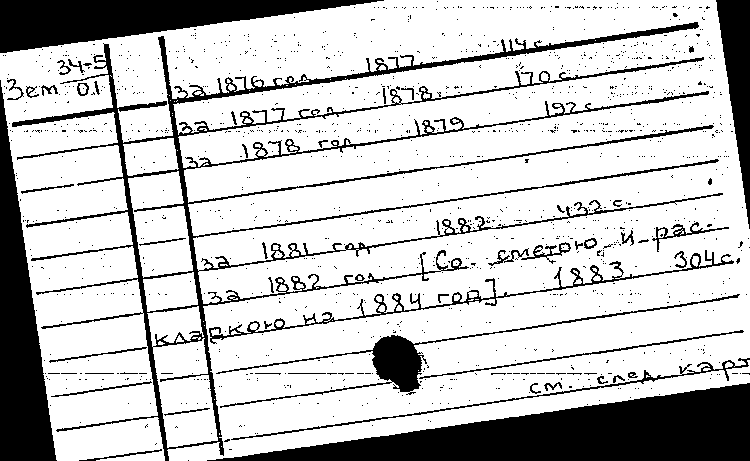 Зем 34-5
01
за 1876 год 1877. 114 с.
за 1877 год 1878. 170 с.
за 1878 год 1879. 192 с.
за 1881 год 1882. 432 с.
за 1882 год [Со сметою и рас-
кладкою на 1884 год]. 1883. 304 с.
см. след. карт